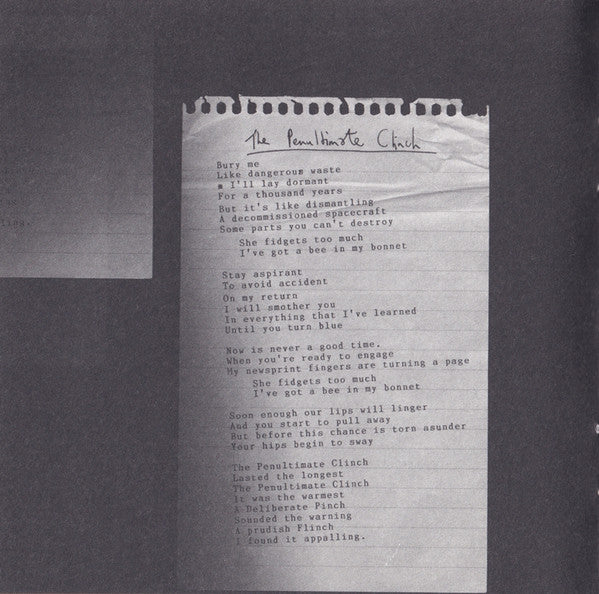 The Penultimate Clinch
Bury me
Like dangerous waste
I'll lay dormant
For a thousand years
But it's like dismantling
A decommissioned spacecraft
Some parts you can't destroy
She fidgets too much
I've got a bee in my bonnet
Stay aspirant
To avoid accident
On my return
I will smother you
In everything that I've learned
Until you turn blue
Now is never a good time.
When you're ready to engage
My newsprint fingers are turning a page
She fidgets too much
I've got a bee in my bonnet
Soon enough our lips will linger
And you start to pull away
But before this chance is torn asunder
Your hips begin to sway
The Penultimate Clinch
Lasted the longest
The Penultimate Clinch
It was the warmest
A Deliberate Pinch
Sounded the warning
A prudish Flinch
I found it appalling.